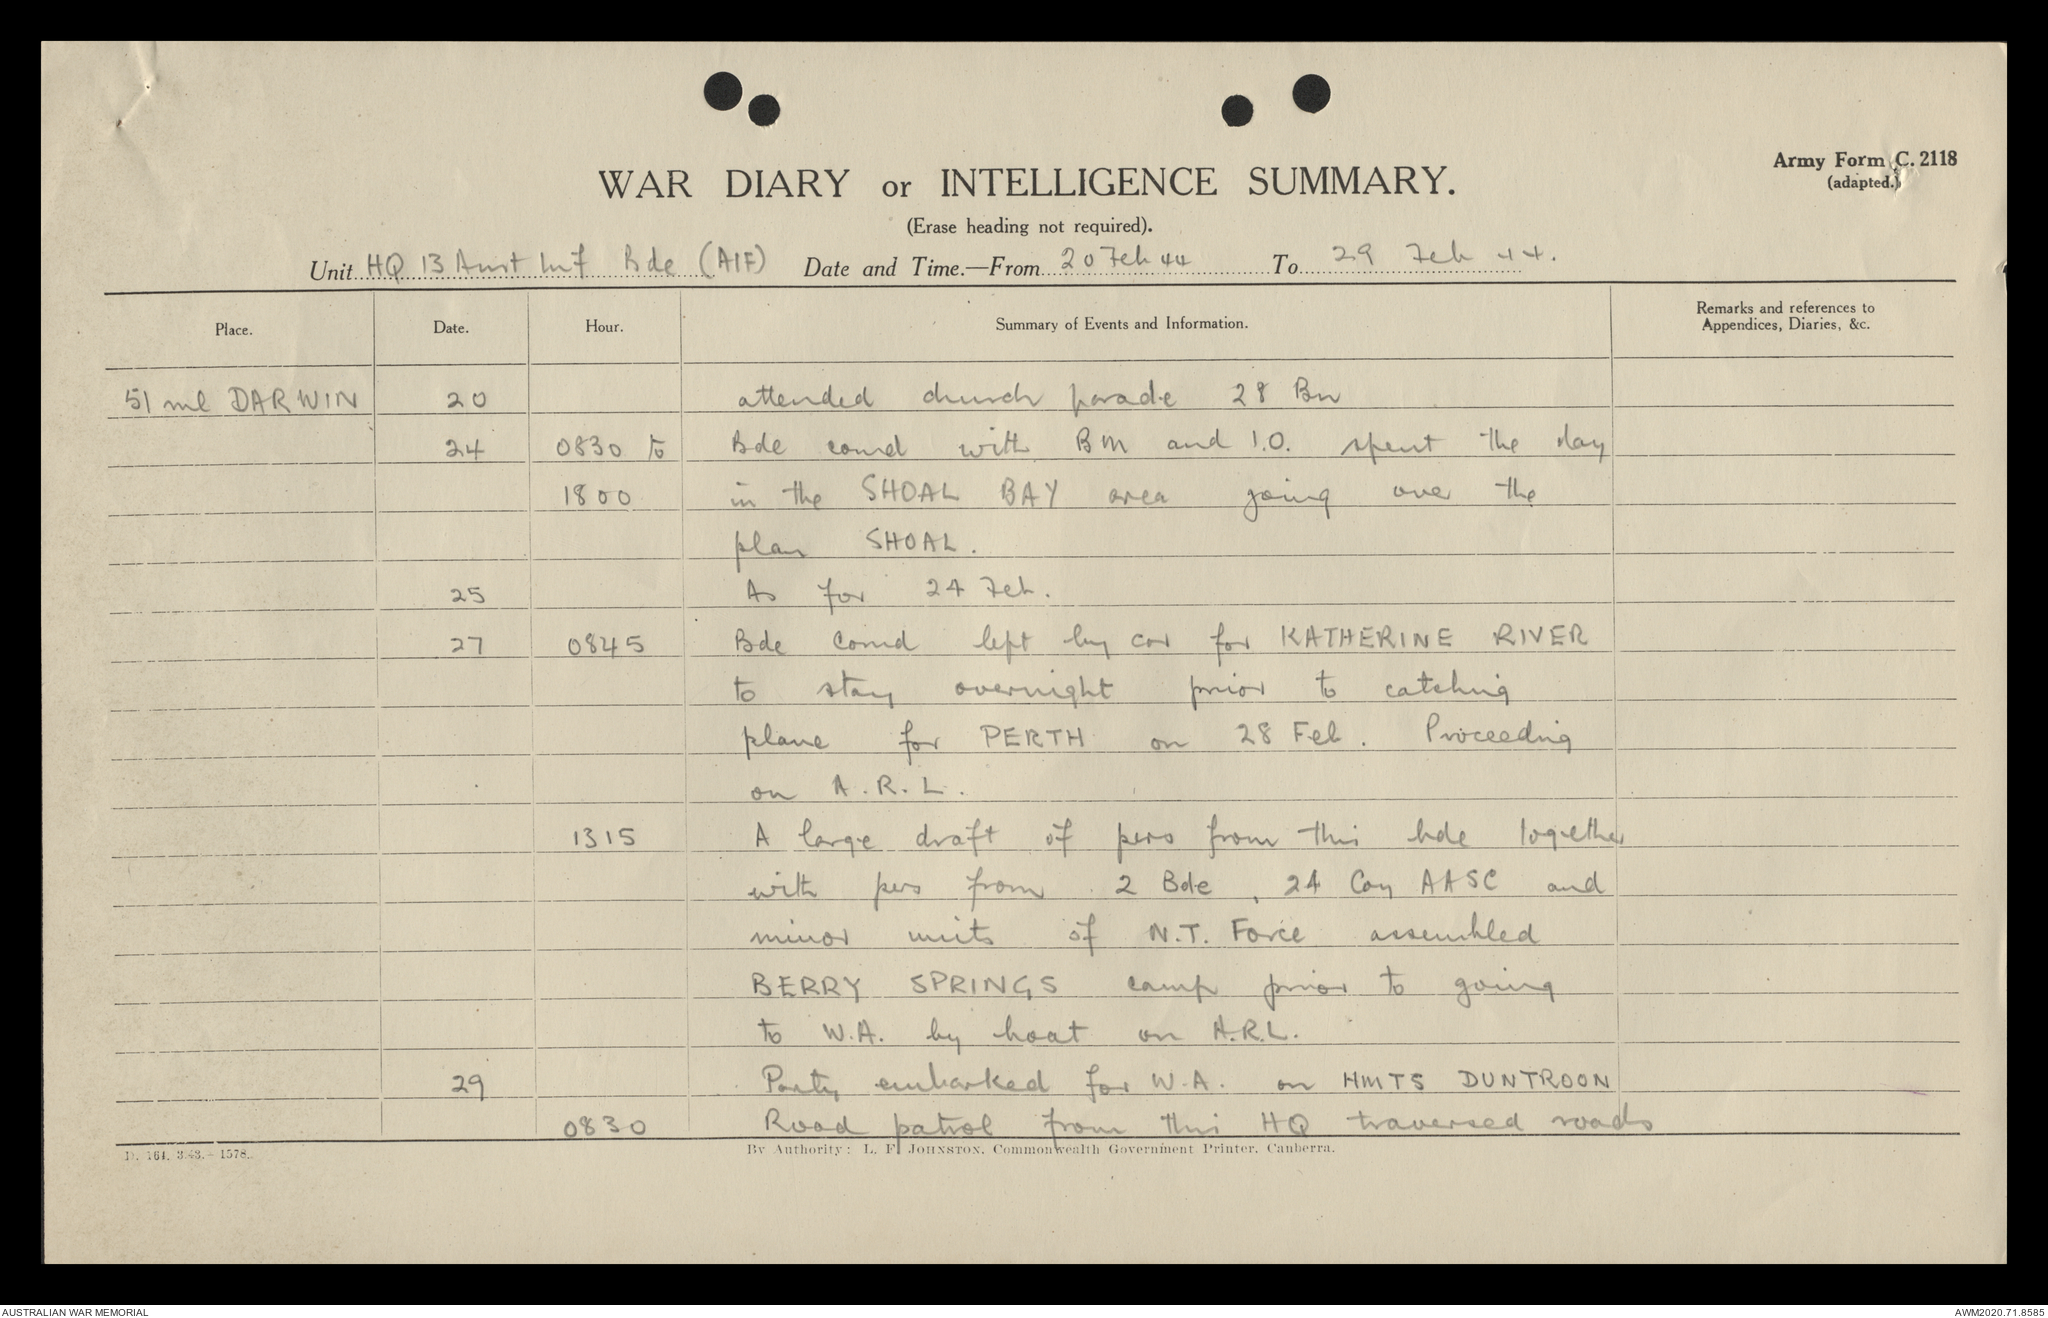 Army Form C. 2118
(adapted.)
WAR DIARY or INTELLIGENCE SUMMARY.
(Erase heading not required).
Unit HQ 13 Aust Inf Bde (AIF) Date and Time.—From 20 Feb 44 To 29 Feb 44.
Place. Date. Hour. Summary of Events and Information. Remarks and references to
Appendices, Diaries, &c.
51 ml DARWIN 20 attended church parade 28 Bn
24 0830 to Bde comd with BM and I.O. spent the day
1800 in the SHOAL BAY area going over the
plan SHOAL.
25 As for 24 Feb.
27 0845 Bde Comd left by car for KATHERINE RIVER
to stay overnight prior to catching
plane for PERTH on 28 Feb. Proceeding
on A.R.L.
1315 A large draft of pers from this bde together
with pers from 2 Bde, 24 Coy AASC and
minor units of N.T. Force assembled
BERRY SPRINGS camp prior to going
to W.A. by boat on A.R.L.
29 Party embarked for W.A. on HMTS DUNTROON
0830 Road patrol from this HQ traversed roads
D. 164. 3.43.—1578.
By Authority: L. F. JOHNSTON, Commonwealth Government Printer, Canberra.
AUSTRALIAN WAR MEMORIAL
AWM2020.71.8585